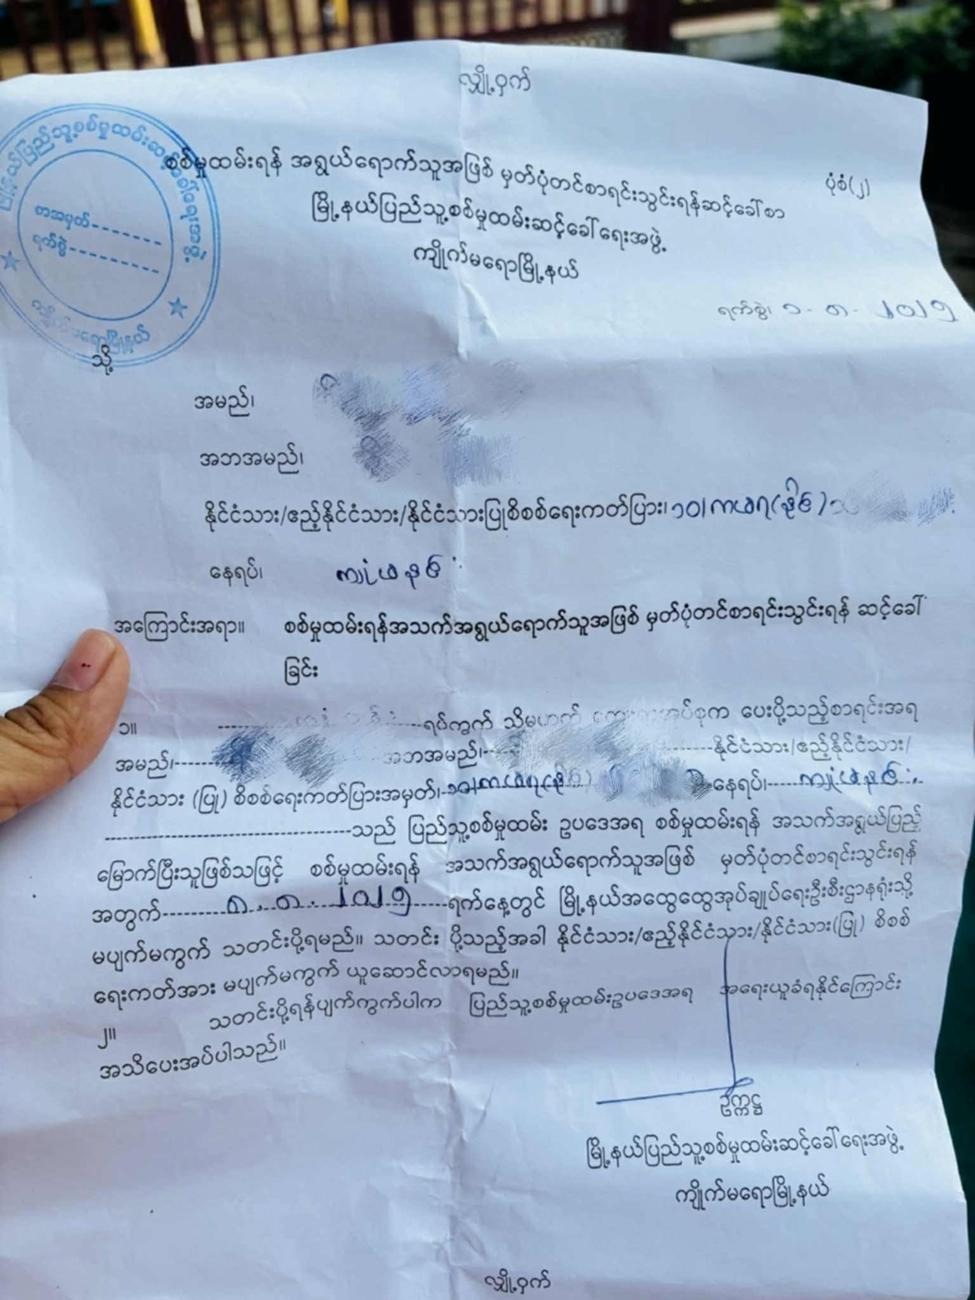 လျှို့ဝှက်
ပုံစံ(၂)
စစ်မှုထမ်းရန် အရွယ်ရောက်သူအဖြစ် မှတ်ပုံတင်စာရင်းသွင်းရန်ဆင့်ခေါ်စာ
မြို့နယ်ပြည်သူ့စစ်မှုထမ်းဆင့်ခေါ်ရေးအဖွဲ့
ကျိုက်မရောမြို့နယ်
စာအမှတ်
ရက်စွဲ
ကျိုက်မရောမြို့နယ်
ရက်စွဲ၊ ၁-၈-၂၀၂၅
သို့
အမည်၊
အဘအမည်၊
နိုင်ငံသား/ဧည့်နိုင်ငံသား/နိုင်ငံသားပြုစိစစ်ရေးကတ်ပြား၊ ၁၀/ကမရ(နိုင်)
နေရပ်၊
အကြောင်းအရာ။ စစ်မှုထမ်းရန်အသက်အရွယ်ရောက်သူအဖြစ် မှတ်ပုံတင်စာရင်းသွင်းရန် ဆင့်ခေါ်
ခြင်း
၁။ ရပ်ကွက် သို့မဟုတ် ကျေးရွာအုပ်စုက ပေးပို့သည့်စာရင်းအရ
အမည်၊ အဘအမည်၊ နိုင်ငံသား/ဧည့်နိုင်ငံသား/
နိုင်ငံသား (ပြု) စိစစ်ရေးကတ်ပြားအမှတ်၊ ၁၀/ကမရ(နိုင်) နေရပ်၊
သည် ပြည်သူ့စစ်မှုထမ်း ဥပဒေအရ စစ်မှုထမ်းရန် အသက်အရွယ်ပြည့်
မြောက်ပြီးသူဖြစ်သဖြင့် စစ်မှုထမ်းရန် အသက်အရွယ်ရောက်သူအဖြစ် မှတ်ပုံတင်စာရင်းသွင်းရန်
အတွက် ၈.၈.၂၀၂၅ ရက်နေ့တွင် မြို့နယ်အထွေထွေအုပ်ချုပ်ရေးဦးစီးဌာနရုံးသို့
မပျက်မကွက် သတင်းပို့ရမည်။ သတင်း ပို့သည့်အခါ နိုင်ငံသား/ဧည့်နိုင်ငံသား/နိုင်ငံသား(ပြု) စိစစ်
ရေးကတ်အား မပျက်မကွက် ယူဆောင်လာရမည်။
၂။ သတင်းပို့ရန်ပျက်ကွက်ပါက ပြည်သူ့စစ်မှုထမ်းဥပဒေအရ အရေးယူခံရနိုင်ကြောင်း
အသိပေးအပ်ပါသည်။
ဥက္ကဋ္ဌ
မြို့နယ်ပြည်သူ့စစ်မှုထမ်းဆင့်ခေါ်ရေးအဖွဲ့
ကျိုက်မရောမြို့နယ်
လျှို့ဝှက်